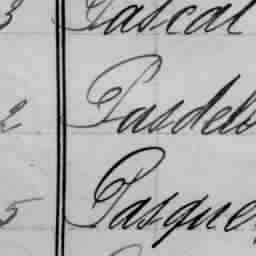 3 Pascal
2 Pasdelo
5 Pasque